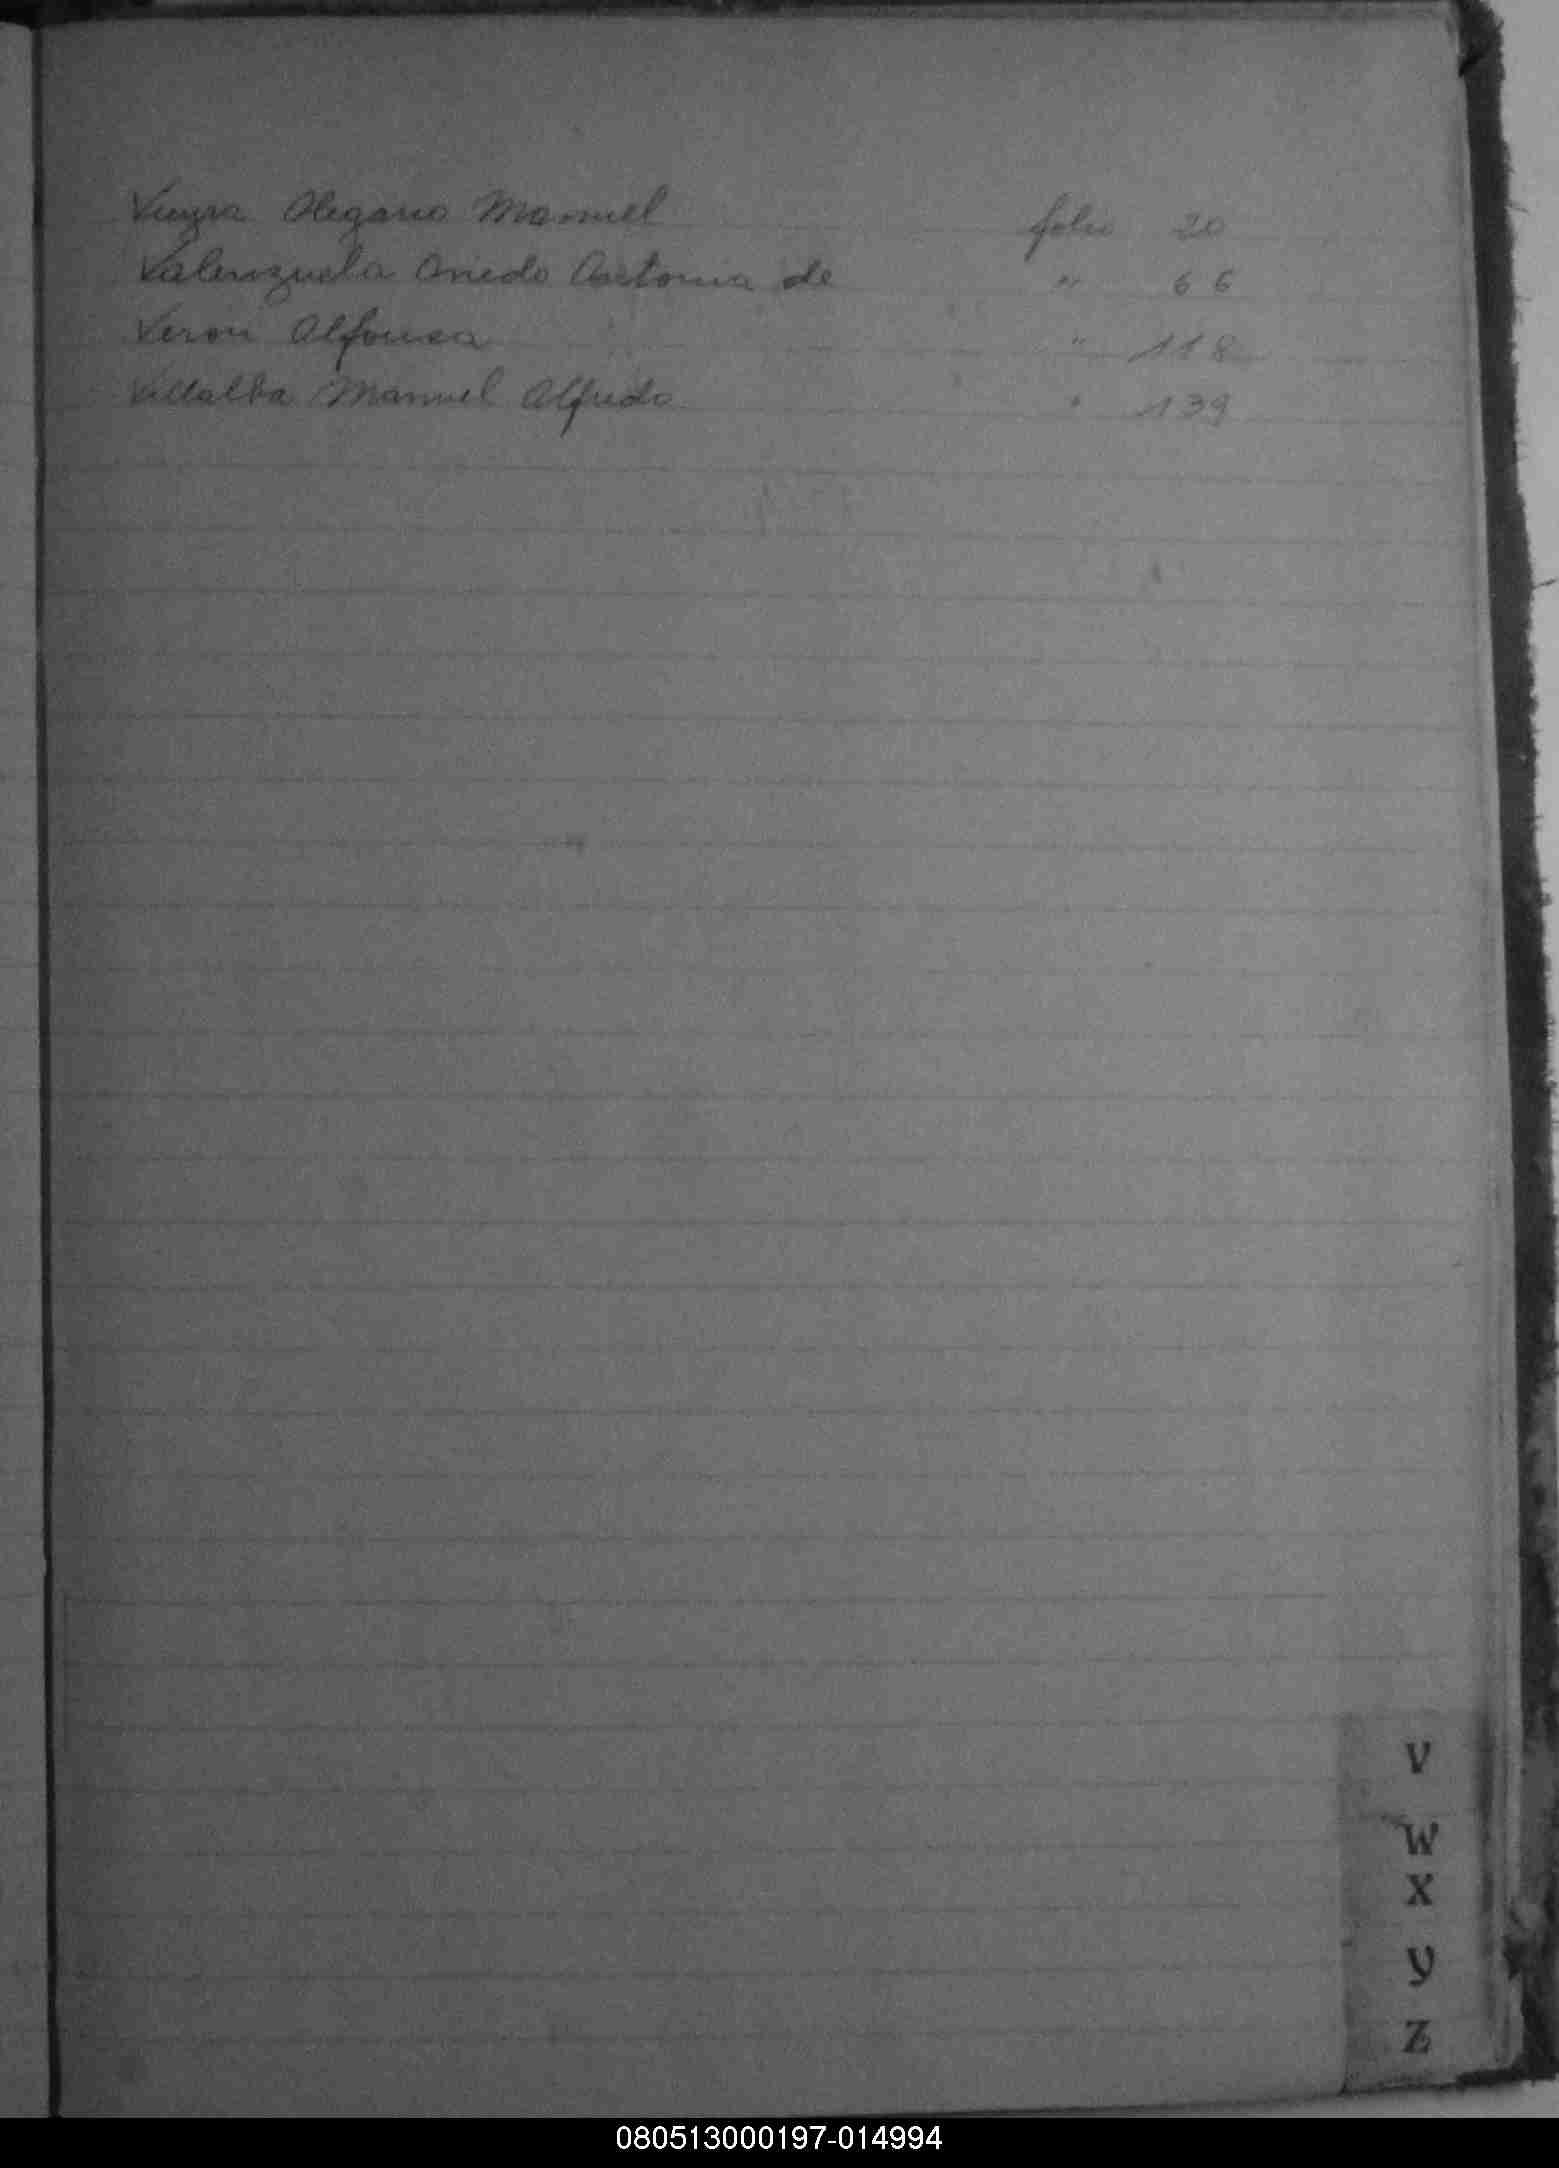 Vieyra Olegario Manuel folio 20
Valenzuela Oviedo Antonia de " 66
Veron Alfonsa " 118
Villalba Manuel Alfredo " 139
V
W
X
Y
Z
080513000197-014994